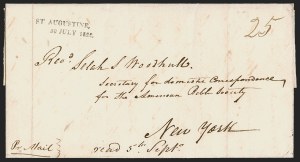 ST. AUGUSTINE,
30 JULY 1822.
25
Revd. Selah S Woodhull.
Secretary for domestic Correspondence
for the American Bible Society
New York
Pr Mail
recd 5th Sept.